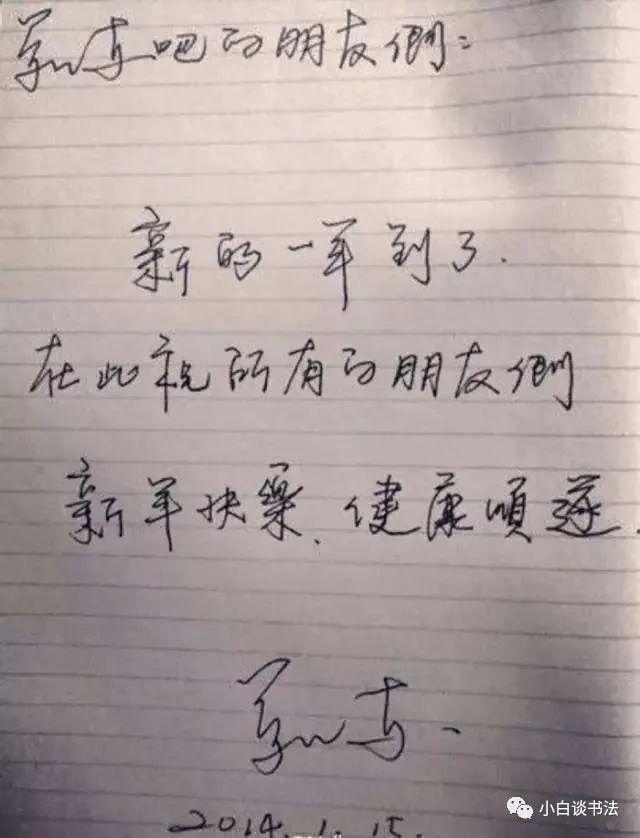 吧的朋友們：
新的一年到了.
在此祝所有的朋友們
新年快樂、健康順遂.
2014.1.15.
小白谈书法